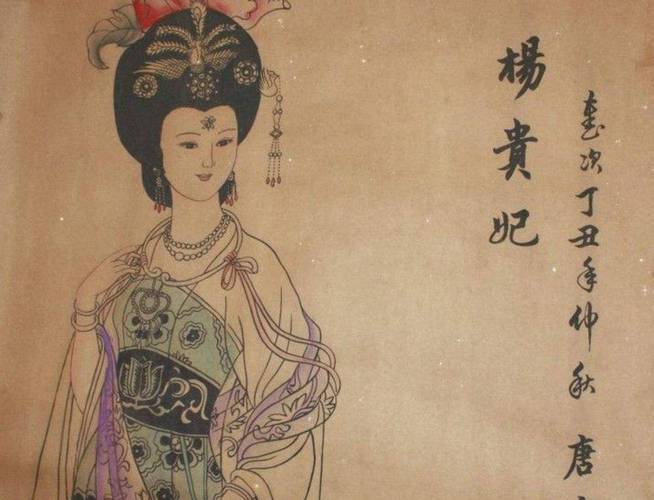 楊貴妃
歲次丁丑年仲秋唐